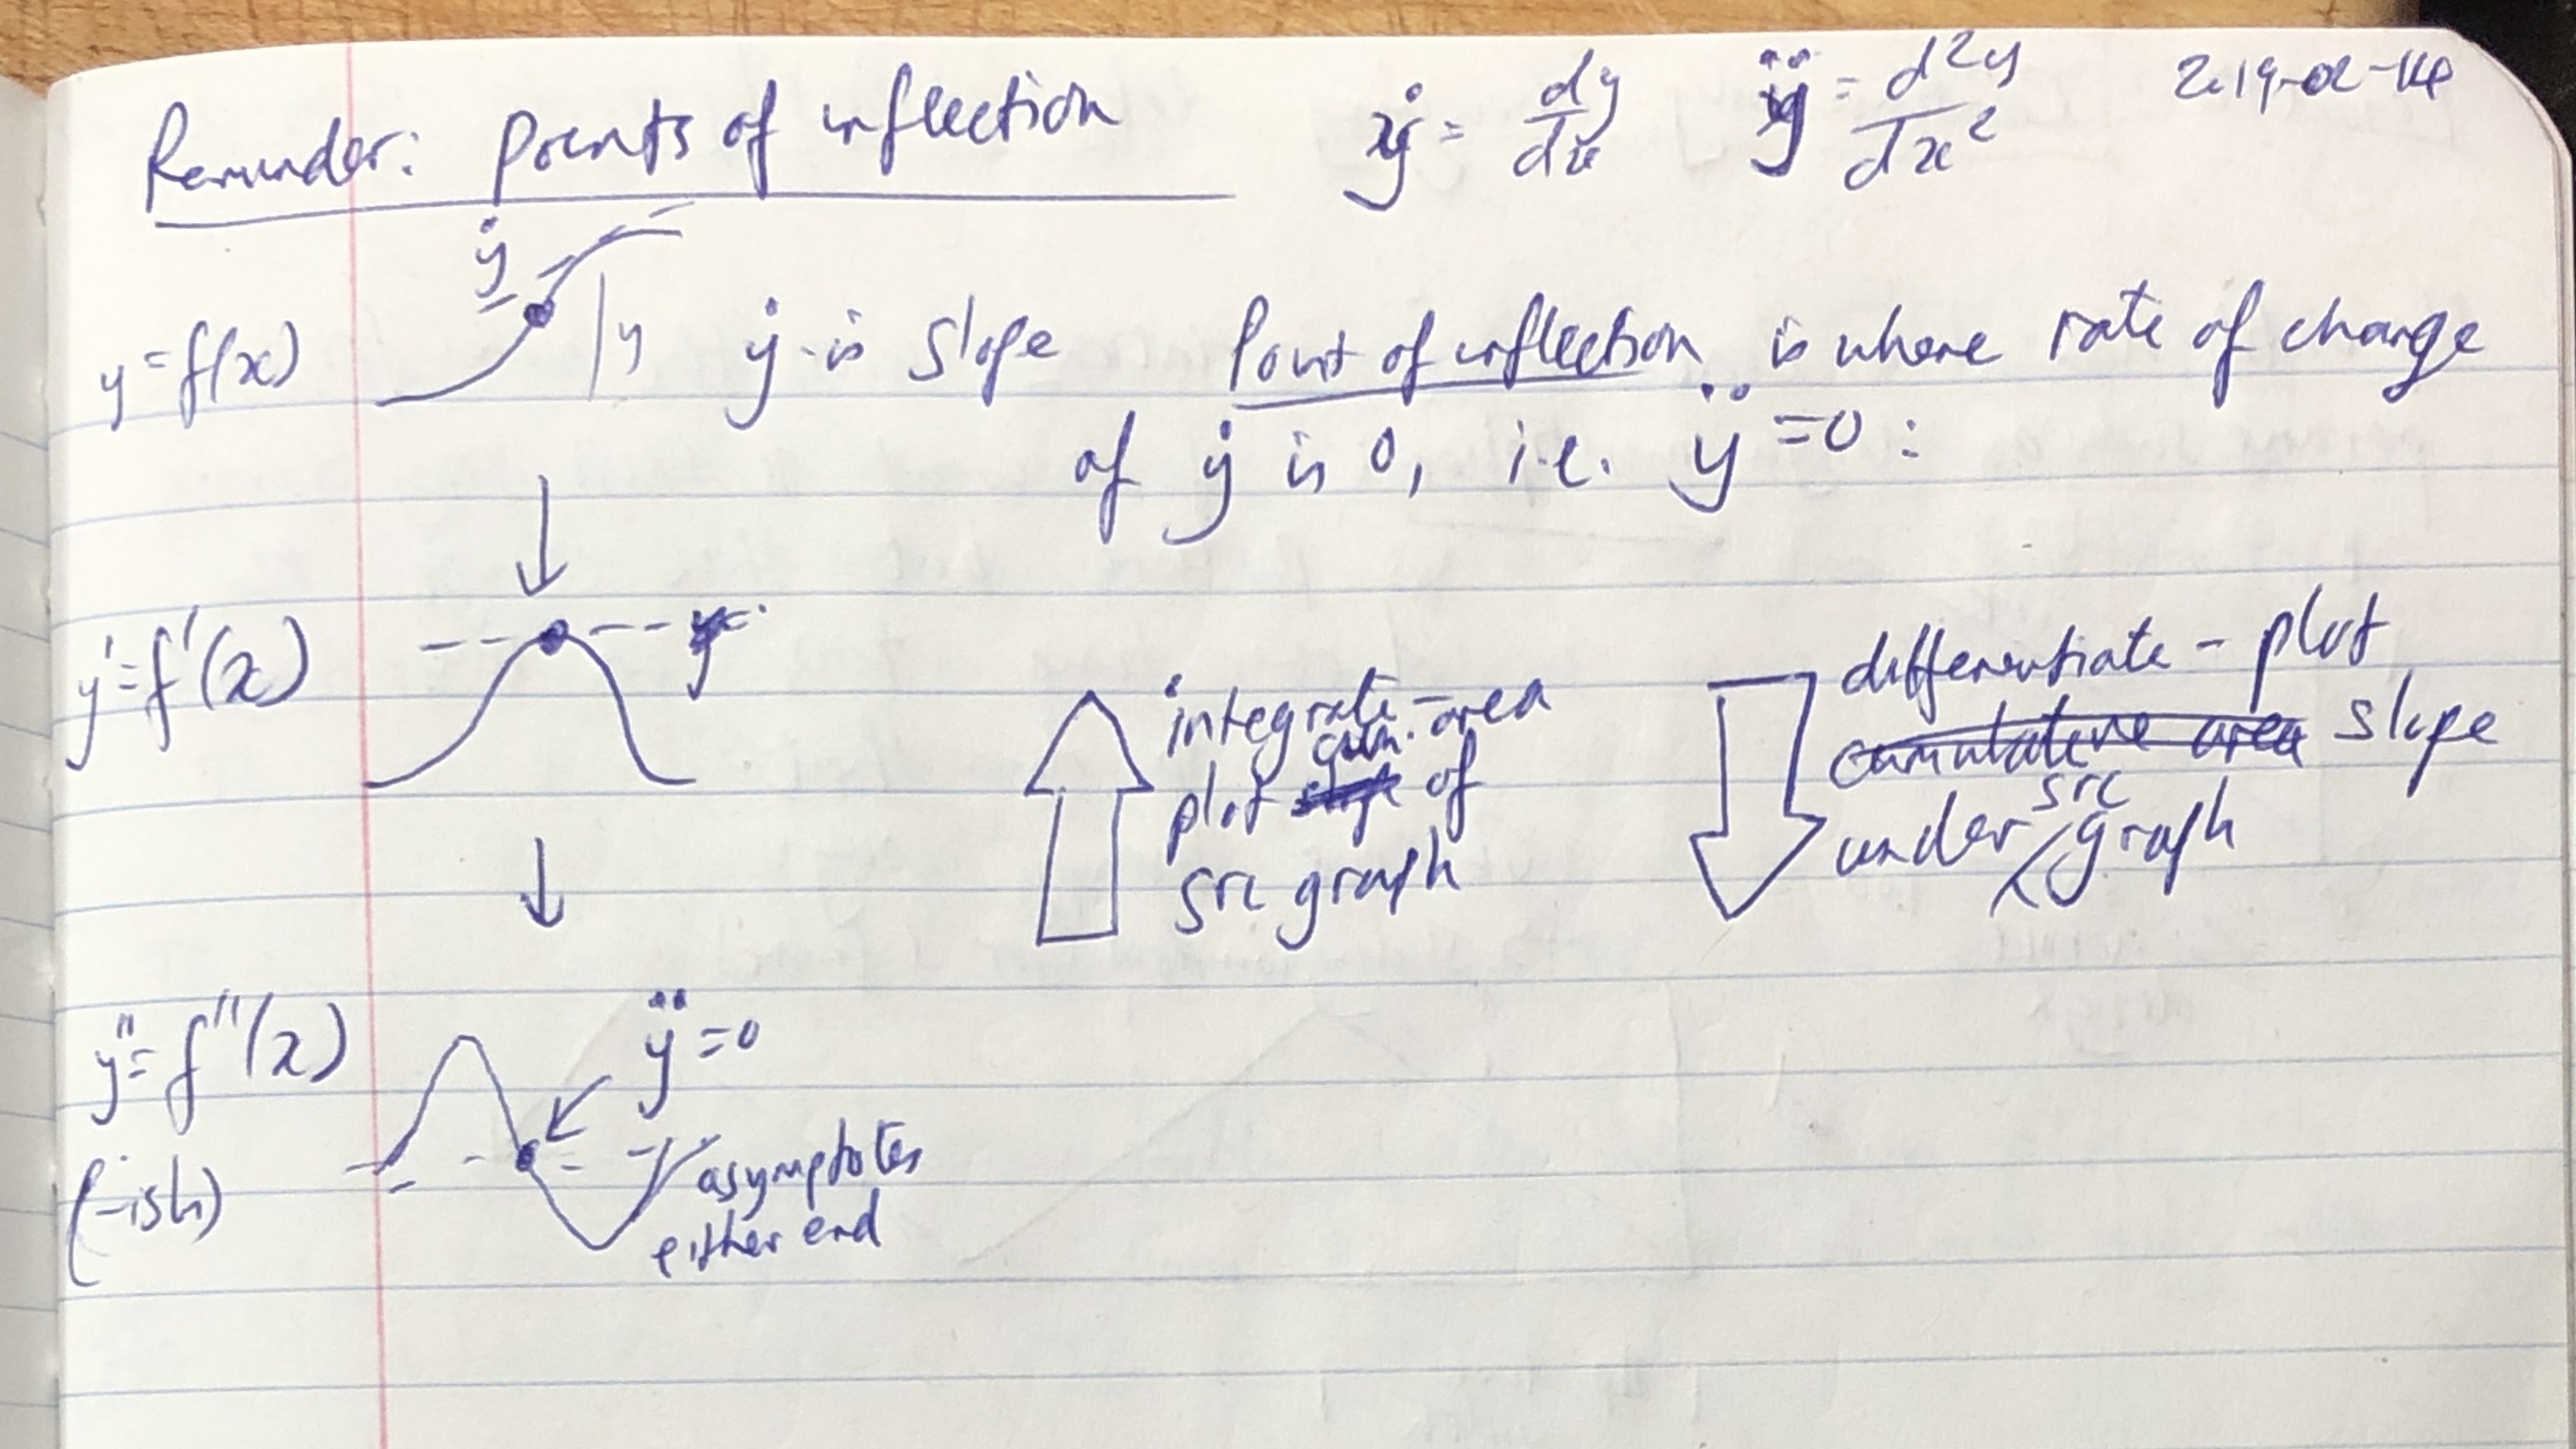 Reminder: points of inflection
ẏ = dy/dx ÿ = d²y/dx²
ẏ
y = f(x) y ẏ is slope Point of inflection is where rate of change
of ẏ is 0, i.e. ÿ = 0 :
y' = f'(x)
integrate - area
plot cum. of
src graph
differentiate - plot
cumulative area slope
under src graph
y'' = f''(x)
(-ish)
ÿ = 0
asymptotes
either end